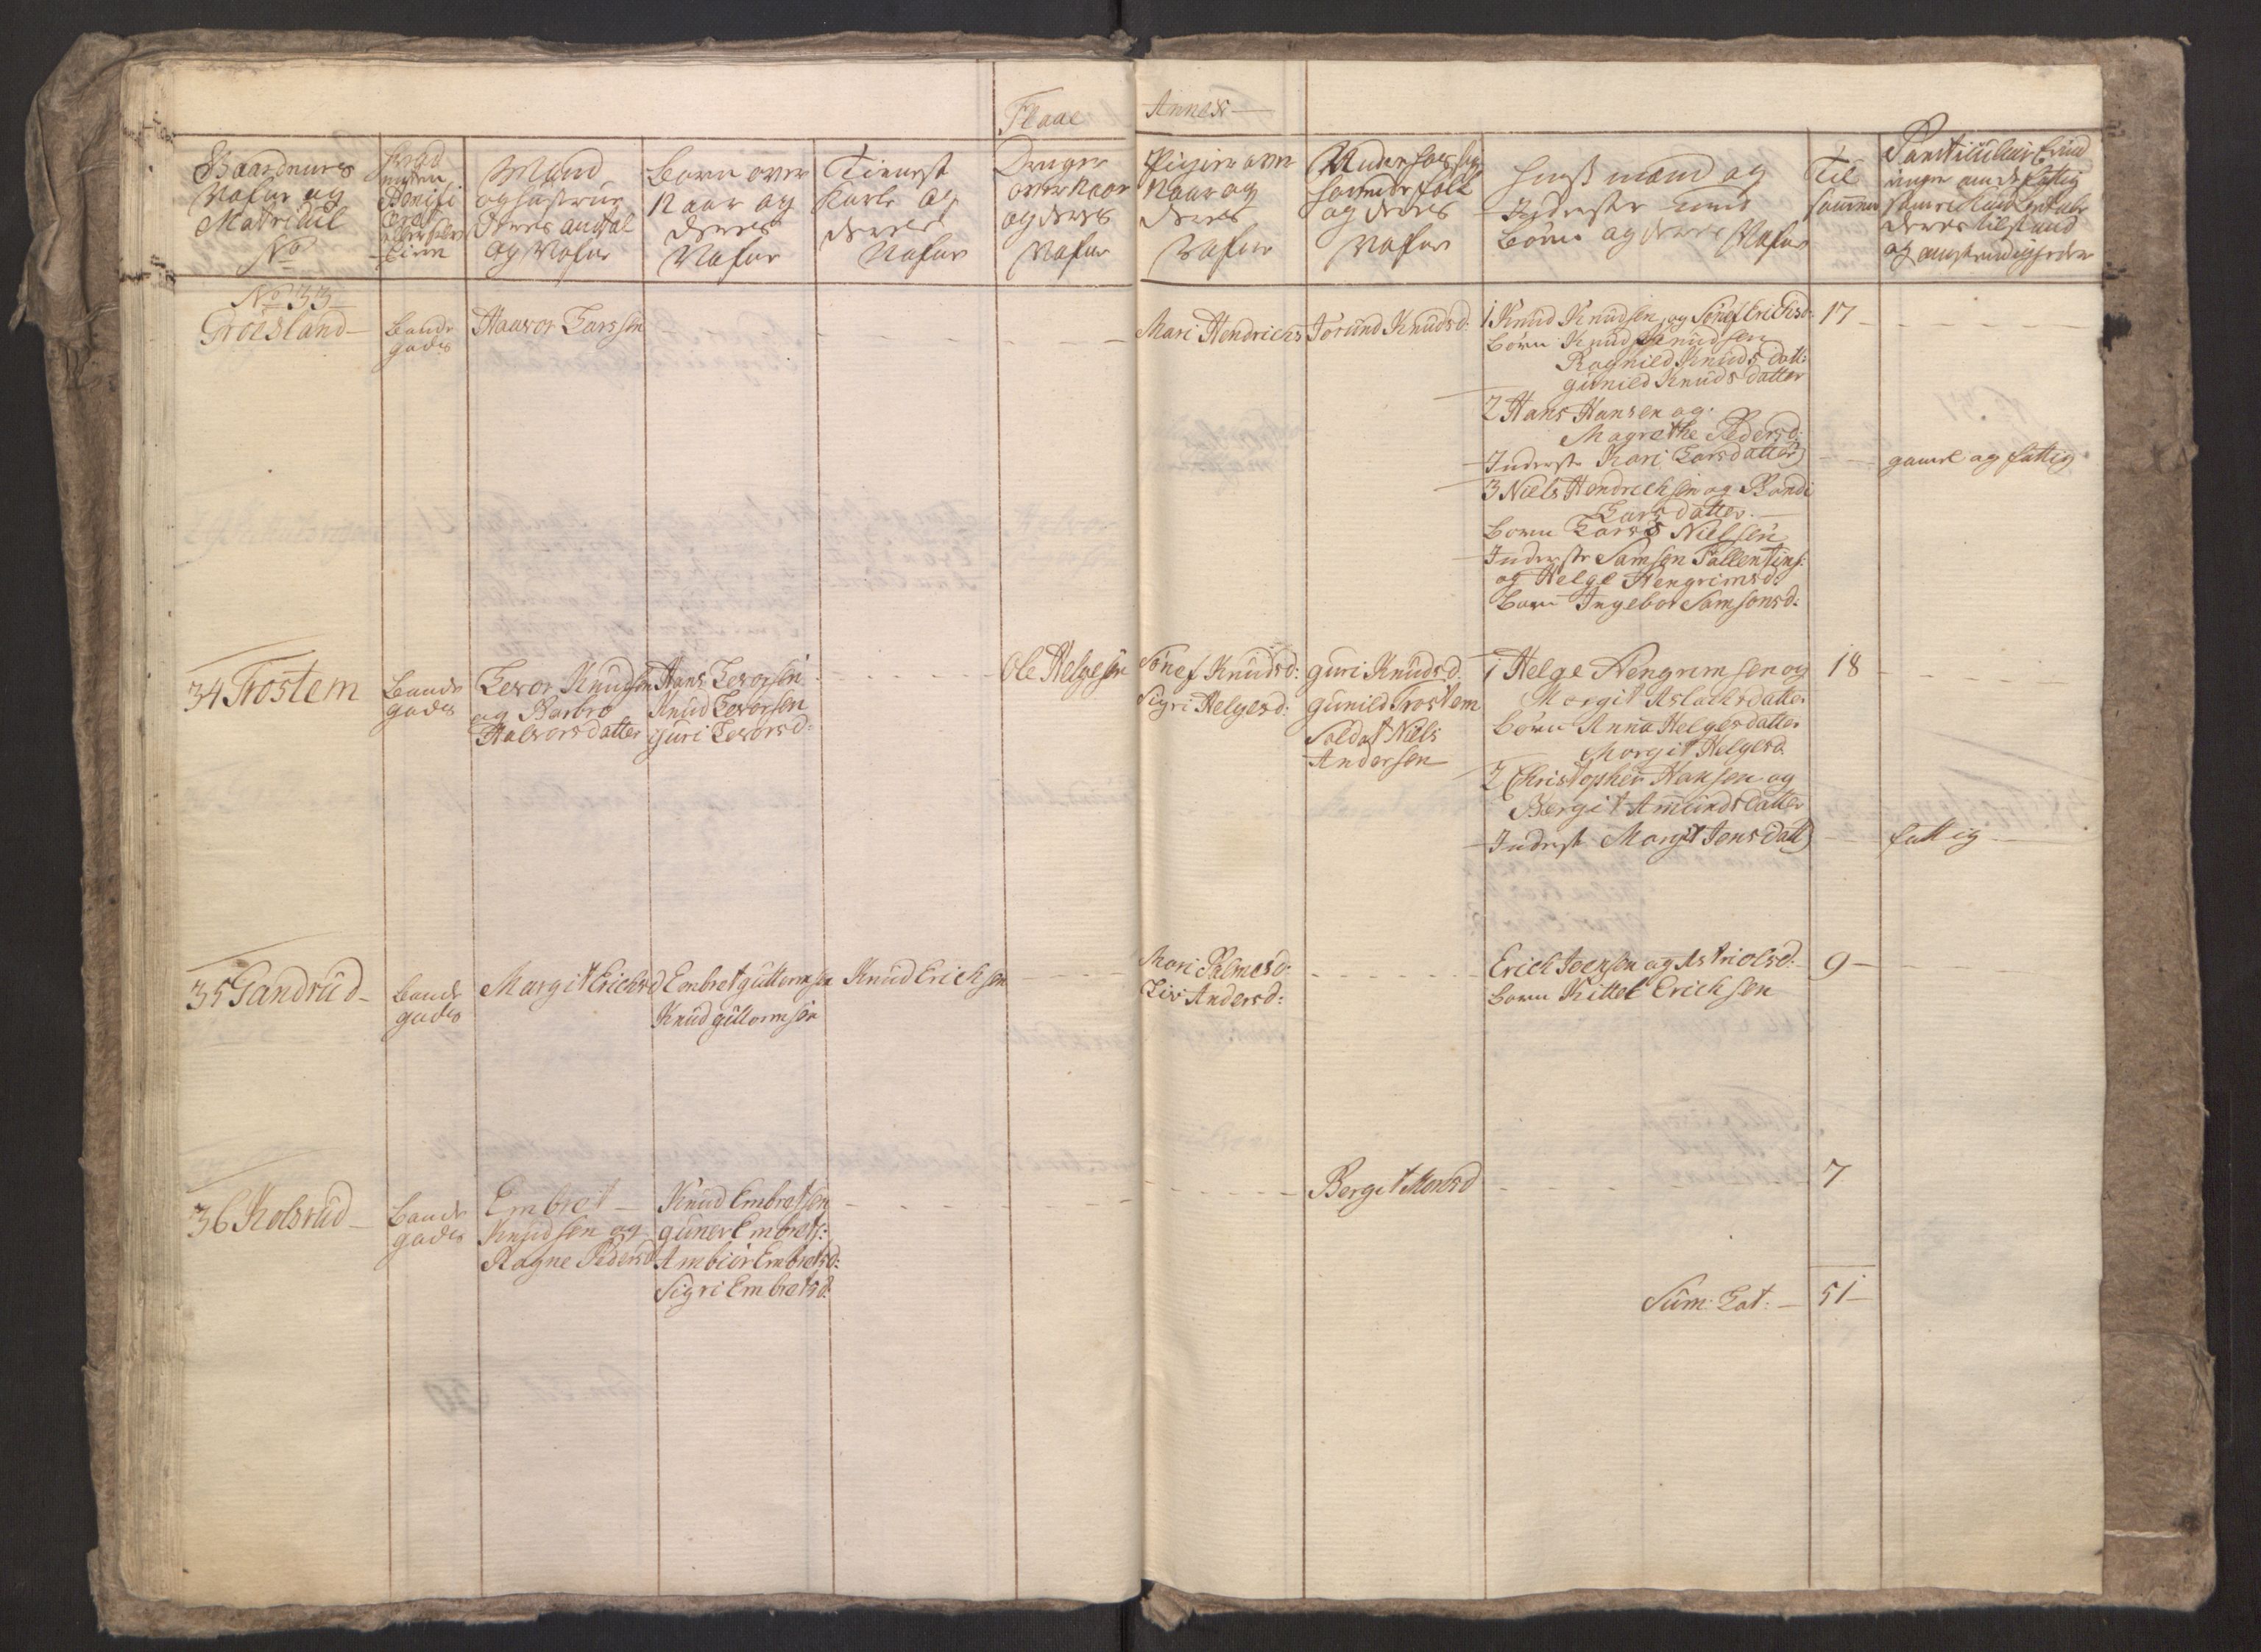 Flaae Annex
Gaardenes
Nafne og
Matricul
No
Mand
og hustrue
deres antal
og Nafne
Børn over
12 aar og
deres
Nafne
Tienest
Karle og
deres
Nafne
Drenge
over 12 aar
og deres
Nafne
Piger over
12 aar og
deres
Nafne
og deres
Nafne
Huusmænd og
Inderster samt
Børn og deres Nafne
Til
sammen
No 33
Groesland
bonde
gods
Halvor Larssen
Mari Hendrichs
Jorund Knudsd:
1 Knud Knudsen og Sönef Erichsd:
børn Knud Knudsen
Ragnild Knuds datt:
gunild Knuds datter
2 Hans Hansen og
Magrethe Pedersd:
Inderste Kari Larsdatter
3 Niels Hendrichsen og Bondi
Lars datter
børn Lars Nielsen
Inderste Samson Tollentins:
og Helge Hengrimsd:
børn Ingebor Samsonsd:
17
gamel og fattig
34 Trostem
bonde
gods
Levor Knudsen
og Barbro
Halvorsdatter
Hans Levorsen
Knud Levorsen
guri Levorsd:
Ole Helgesen
Sönef Knudsd:
Sigri Helgesd:
guri Knudsd.
gunild Trostem
Soldat Niels
Andersen
1 Helge Hengrimsen og
Margit Aslachsdatter
børn Anna Helgesdatter
Morgit Helgesd.
2 Christopher Hansen og
Bergit Amundsdatter
Inderste Margit Jonsdatt
18
fattig
35 Sandrud
bonde
gods
Margit Erichsd
Embret guttormsen
Knud guttormsen
Knud Erichsen
Mari Palmesd:
Liv Andersd:
Erich Joensen og Astri Olsd:
børn Kittel Erichsen
9
36 Kolsrud
bonde
gods
Embret
Knudsen og
Ragne Pedersd
Knud Embretsen
guner Embrets:
Ambiör Embretsd:
Sigri Embretsd:
Bergit Monsd
7
Sum: Lat: 51